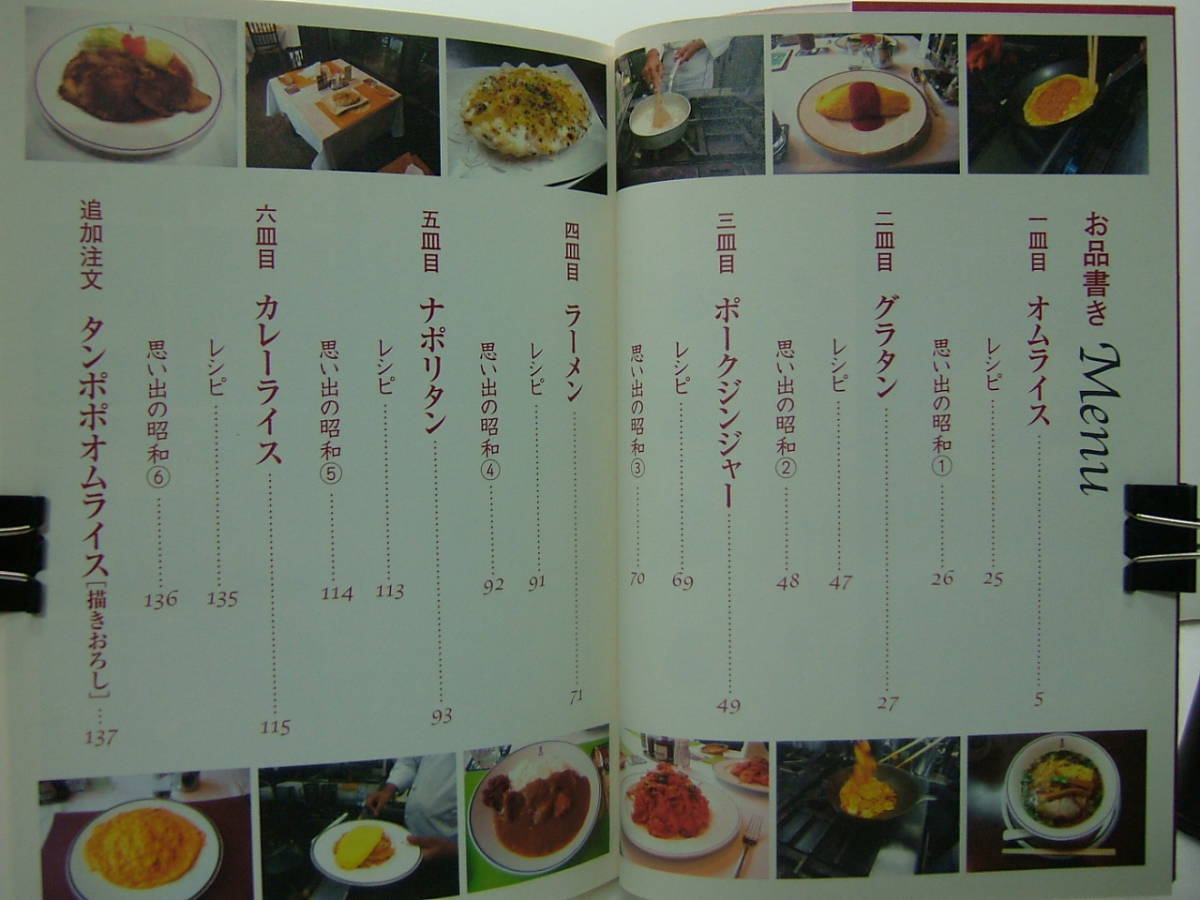 お品書き Menu
一皿目 オムライス…………5
レシピ…………25
思い出の昭和①…………26
二皿目 グラタン…………27
レシピ…………47
思い出の昭和②…………48
三皿目 ポークジンジャー…………49
レシピ…………69
思い出の昭和③…………70
四皿目 ラーメン…………71
レシピ…………91
思い出の昭和④…………92
五皿目 ナポリタン…………93
レシピ…………113
思い出の昭和⑤…………114
六皿目 カレーライス…………115
レシピ…………135
思い出の昭和⑥…………136
追加注文 タンポポオムライス[描きおろし]…137